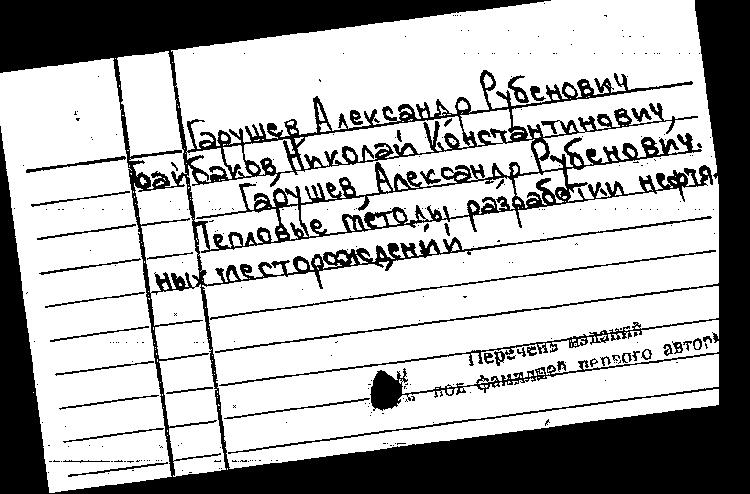 Гарушев Александр Рубенович
Байбаков, Николай Константинович,
Гарушев, Александр Рубенович.
Тепловые методы разработки нефтя-
ных месторождений.
Перечень изданий
под фамилией первого автора